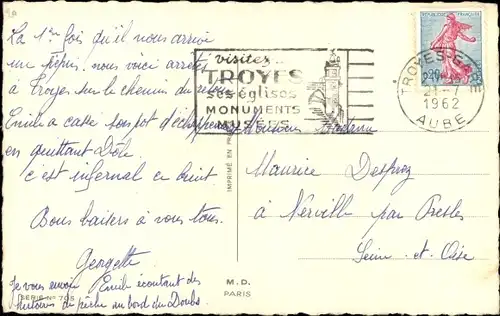 La 1ère fois qu'il nous arrive
un pépin, nous voici arrêté
à Troyes sur le chemin du retour
Emile a cassé son pot d'échappement
en quittant Dôle.
c'est infernal ce bruit
Bons baisers à vous tous.
Georgette
Je vous envoie Emile écoutant des
histoires de pêche au bord du Doubs.
SERIE N° 705
IMPRIMÉ EN
M. D.
PARIS
visitez..
TROYES
ses églises
MONUMENTS
MUSÉES
REPUBLIQUE FRANÇAISE
TROYES-GARE
21-7
1962
AUBE
Monsieur Madame
Maurice Desprez
à Nerville par Presles
Seine-et-Oise